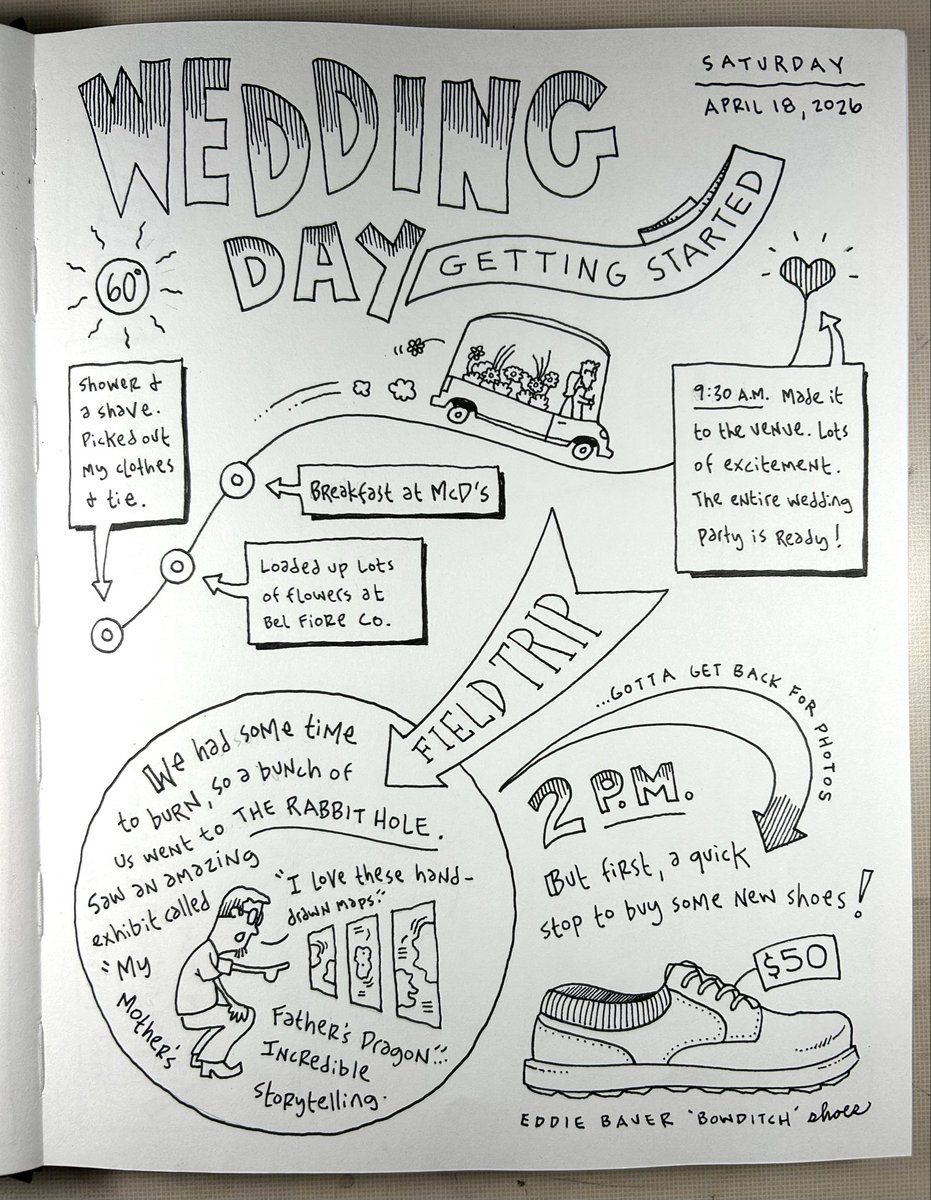 WEDDING
DAY
SATURDAY
APRIL 18, 2026
GETTING STARTED
60°
Shower &
a shave.
Picked out
my clothes
& tie.
Loaded up lots
of flowers at
Bel Fiore Co.
Breakfast at McD's
9:30 A.M. Made it
to the venue. Lots
of excitement.
The entire wedding
party is ready!
FIELD TRIP
We had some time
to burn, so a bunch of
us went to THE RABBIT HOLE.
Saw an amazing
exhibit called
"My
Mother's
Father's Dragon".
Incredible
storytelling.
"I love these hand-
drawn maps."
...GOTTA GET BACK FOR PHOTOS
2 P.M.
But first, a quick
stop to buy some new shoes!
$50
EDDIE BAUER 'BOWDITCH' shoes